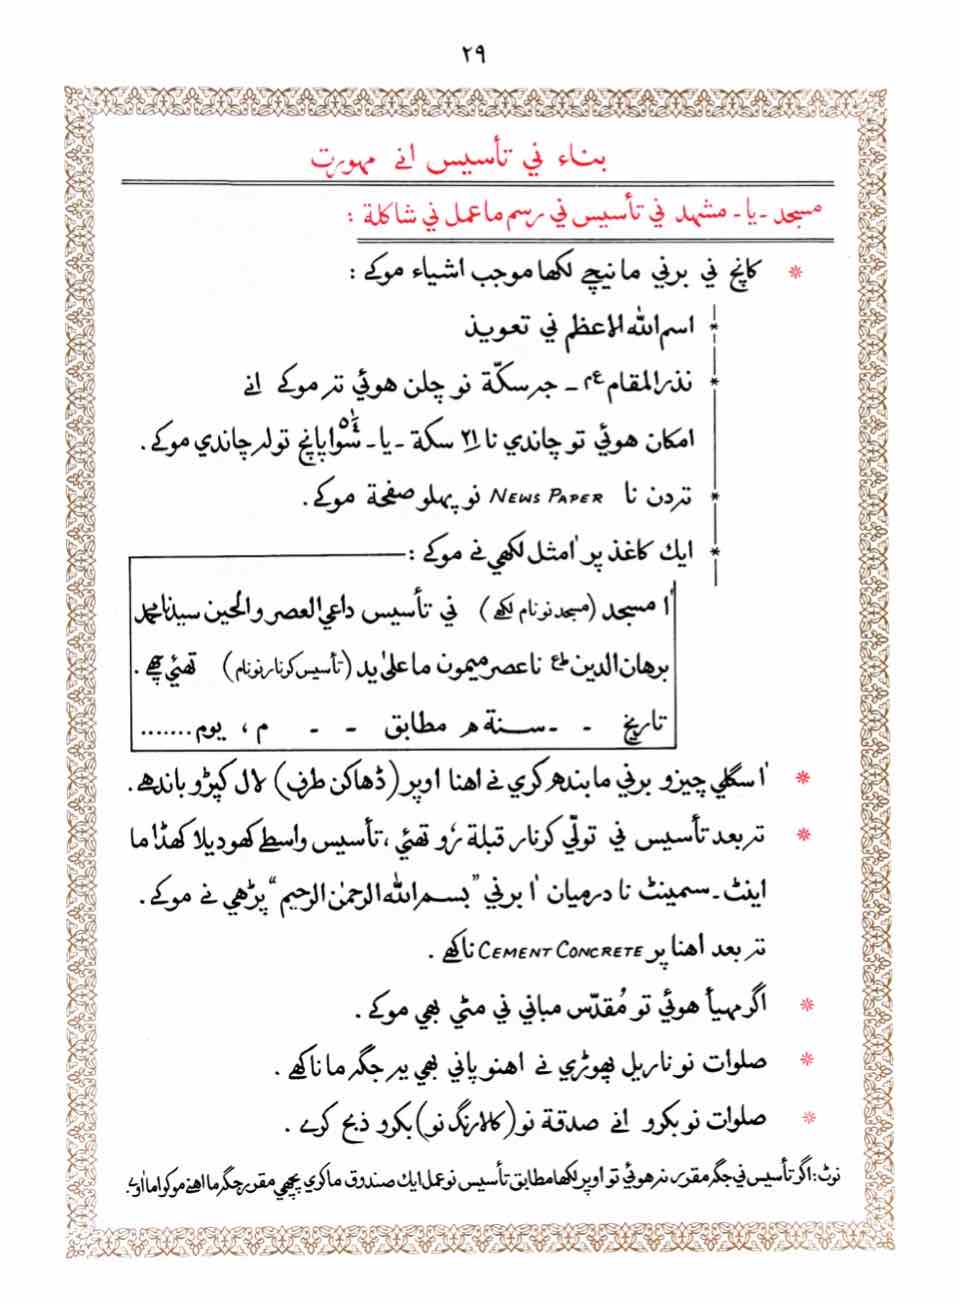 ٢٩
بناء ني تأسيس انے مهورت
مسجد ـ يا ـ مشهد ني تأسيس ني رسم ما عمل ني شاكلة :
كانچ ني برني ما نيچے لكها موجب اشياء موكے :
اسم الله الاعظم ني تعويذ
نذر المقام ع م ـ جه سكّة نو چلن هوئي ته موكے انے
امكان هوئي تو چاندي نا ٢١ سكة ـ يا ـ سَوا پانچ توله چاندي موكے .
ته دن نا NEWS PAPER نو پهلو صفحة موكے .
ايك كاغذ پر اْمثل لكهي نے موكے :
اْ مسجد (مسجد نو نام لكهے) ني تأسيس داعي العصر والحين سيدنا محمد
برهان الدين طع نا عصر ميمون ما علىٰ يد (تأسيس كرنار نو نام) تهئي چهے .
تاريخ - - سنة ه مطابق - - م ، يوم .......
اْ سگلي چيزو برني ما بندهـ كري نے اهنا اوپر (ڈهاكن طرف) لال كپڑو باندهے .
ته بعد تأسيس ني تولّي كرنار قبلة رُو تهئي ، تأسيس واسطے كهوديلا كهڈا ما
اينٹ ـ سمينٹ نا درميان اْ برني "بسم الله الرحمٰن الرحيم" پڑهي نے موكے .
ته بعد اهنا پر CEMENT CONCRETE ناكهے .
اگر مهيأ هوئي تو مُقدّس مباني ني مٹي بهي موكے .
صلوات نو ناريل پهوڑي نے اهنو پاني بهي يه جگه ما ناكهے .
صلوات نو بكرو انے صدقة نو (كالا رنگ نو) بكرو ذبح كرے .
نوٹ : اگر تأسيس ني جگه مقرر نه هوئي تو اوپر لكها مطابق تأسيس نو عمل ايك صندوق ما كري پچهي مقرر جگه ما اهنے موكوا ما اٰوے .